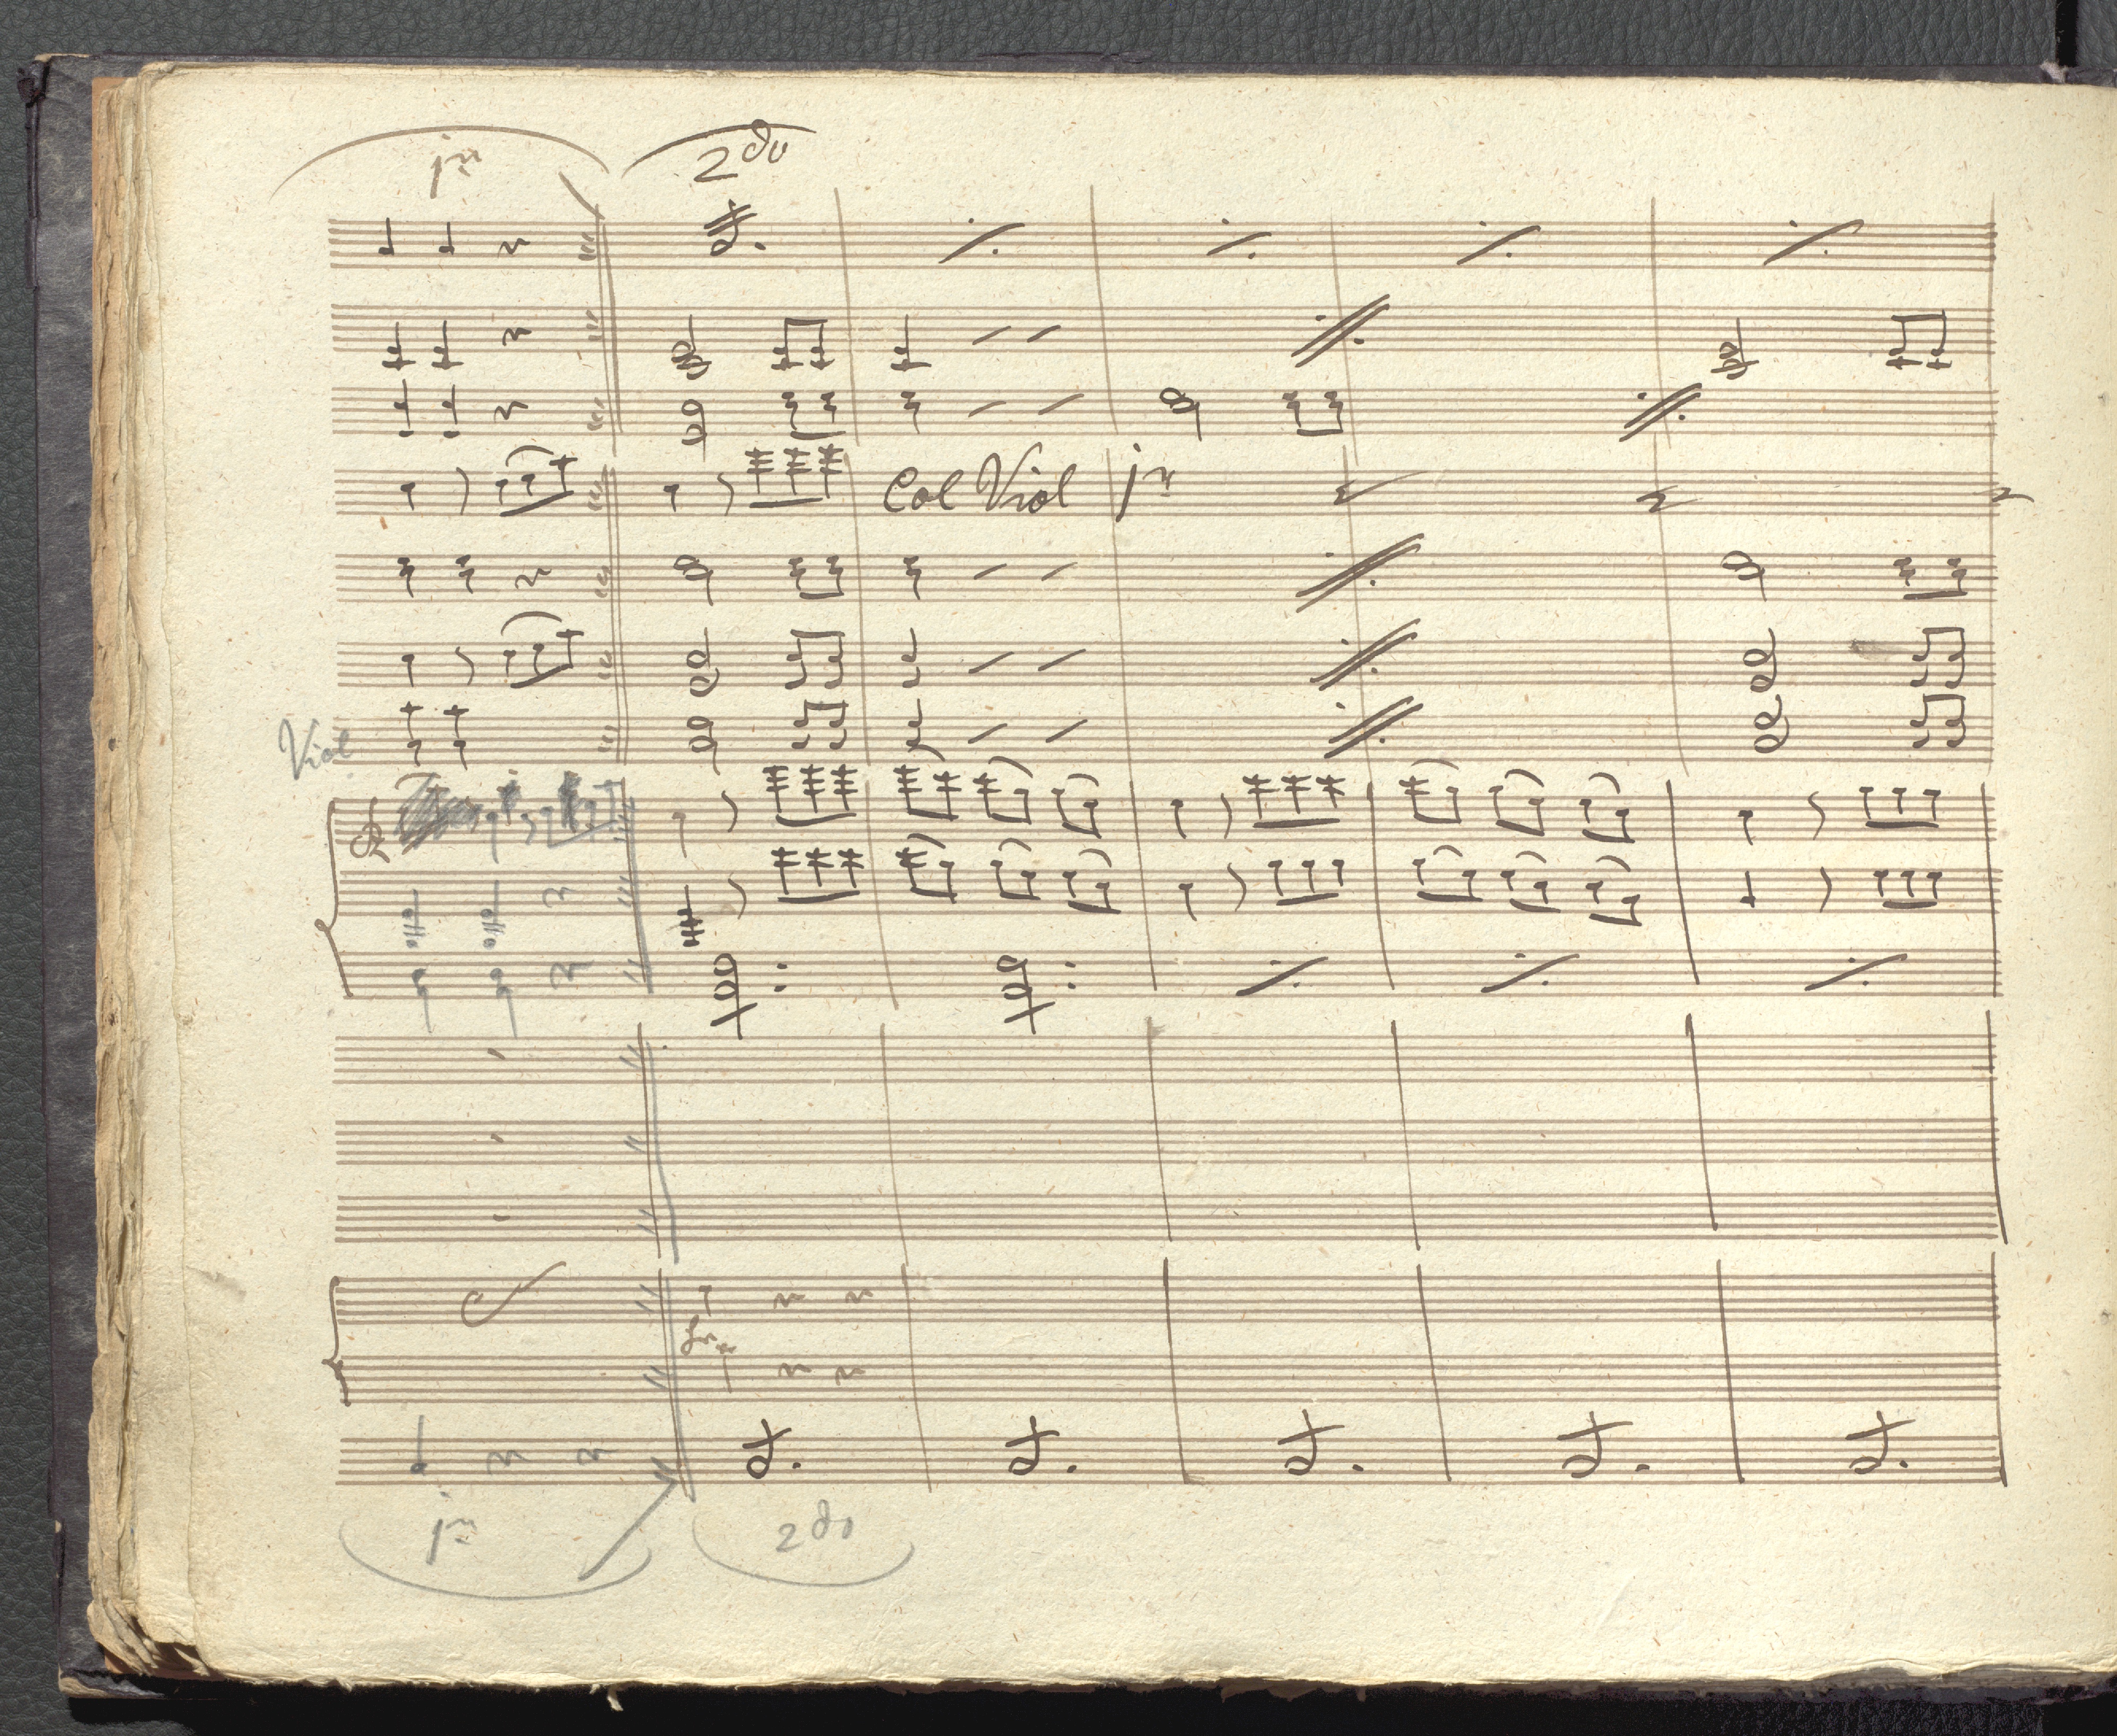 1mo 2do
Col Viol 1mo
Viol
1mo 2do